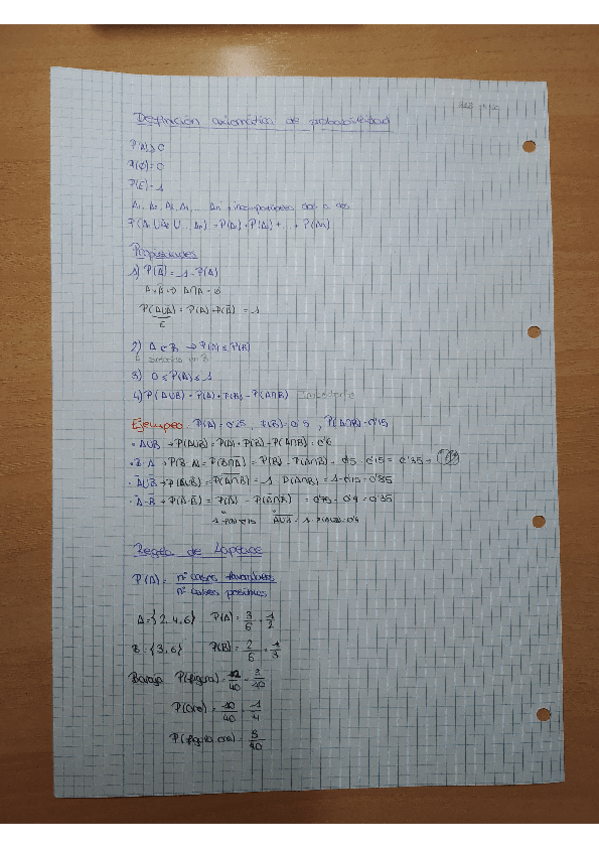 Definición axiomática de probabilidad
P(A) ≥ 0
P(∅)=0
P(E)=1
A₁, A₂, A₃, A₄, ... An incompatibles dos a dos
P(A₁ ∪ A₂ ∪ ... An) = P(A₁) + P(A₂) + ... + P(An)
Propiedades
1) P(A̅) = 1 - P(A)
P(A∪A̅) = P(A) + P(A̅) = 1
E
2) A ⊂ B → P(A) ≤ P(B)
3) 0 ≤ P(A) ≤ 1
4) P(A∪B) = P(A) + P(B) - P(A∩B) Importante
Ejemplo: P(A)=0'25, P(B)=0'5, P(A∩B)=0'15
· A∪B → P(A∪B) = P(A) + P(B) - P(A∩B) = 0'6
· B-A → P(B-A) = P(B∩A̅) = P(B) - P(A∩B) = 0'5 - 0'15 = 0'35
· A̅∪B̅ → P(A̅∪B̅) = P(A̅∩B̅) = 1 - P(A∩B) = 1-0'15 = 0'85
Regla de Laplace
P(A) = nº casos favorables
nº casos posibles
A={2,4,6} P(A) = 3/6 = 1/2
B={3,6} P(B) = 2/6 = 1/3
Baraja P(figura) = 12/40 = 3/10
P(Oro) = 10/40 = 1/4
P(figura oro) = 3/40